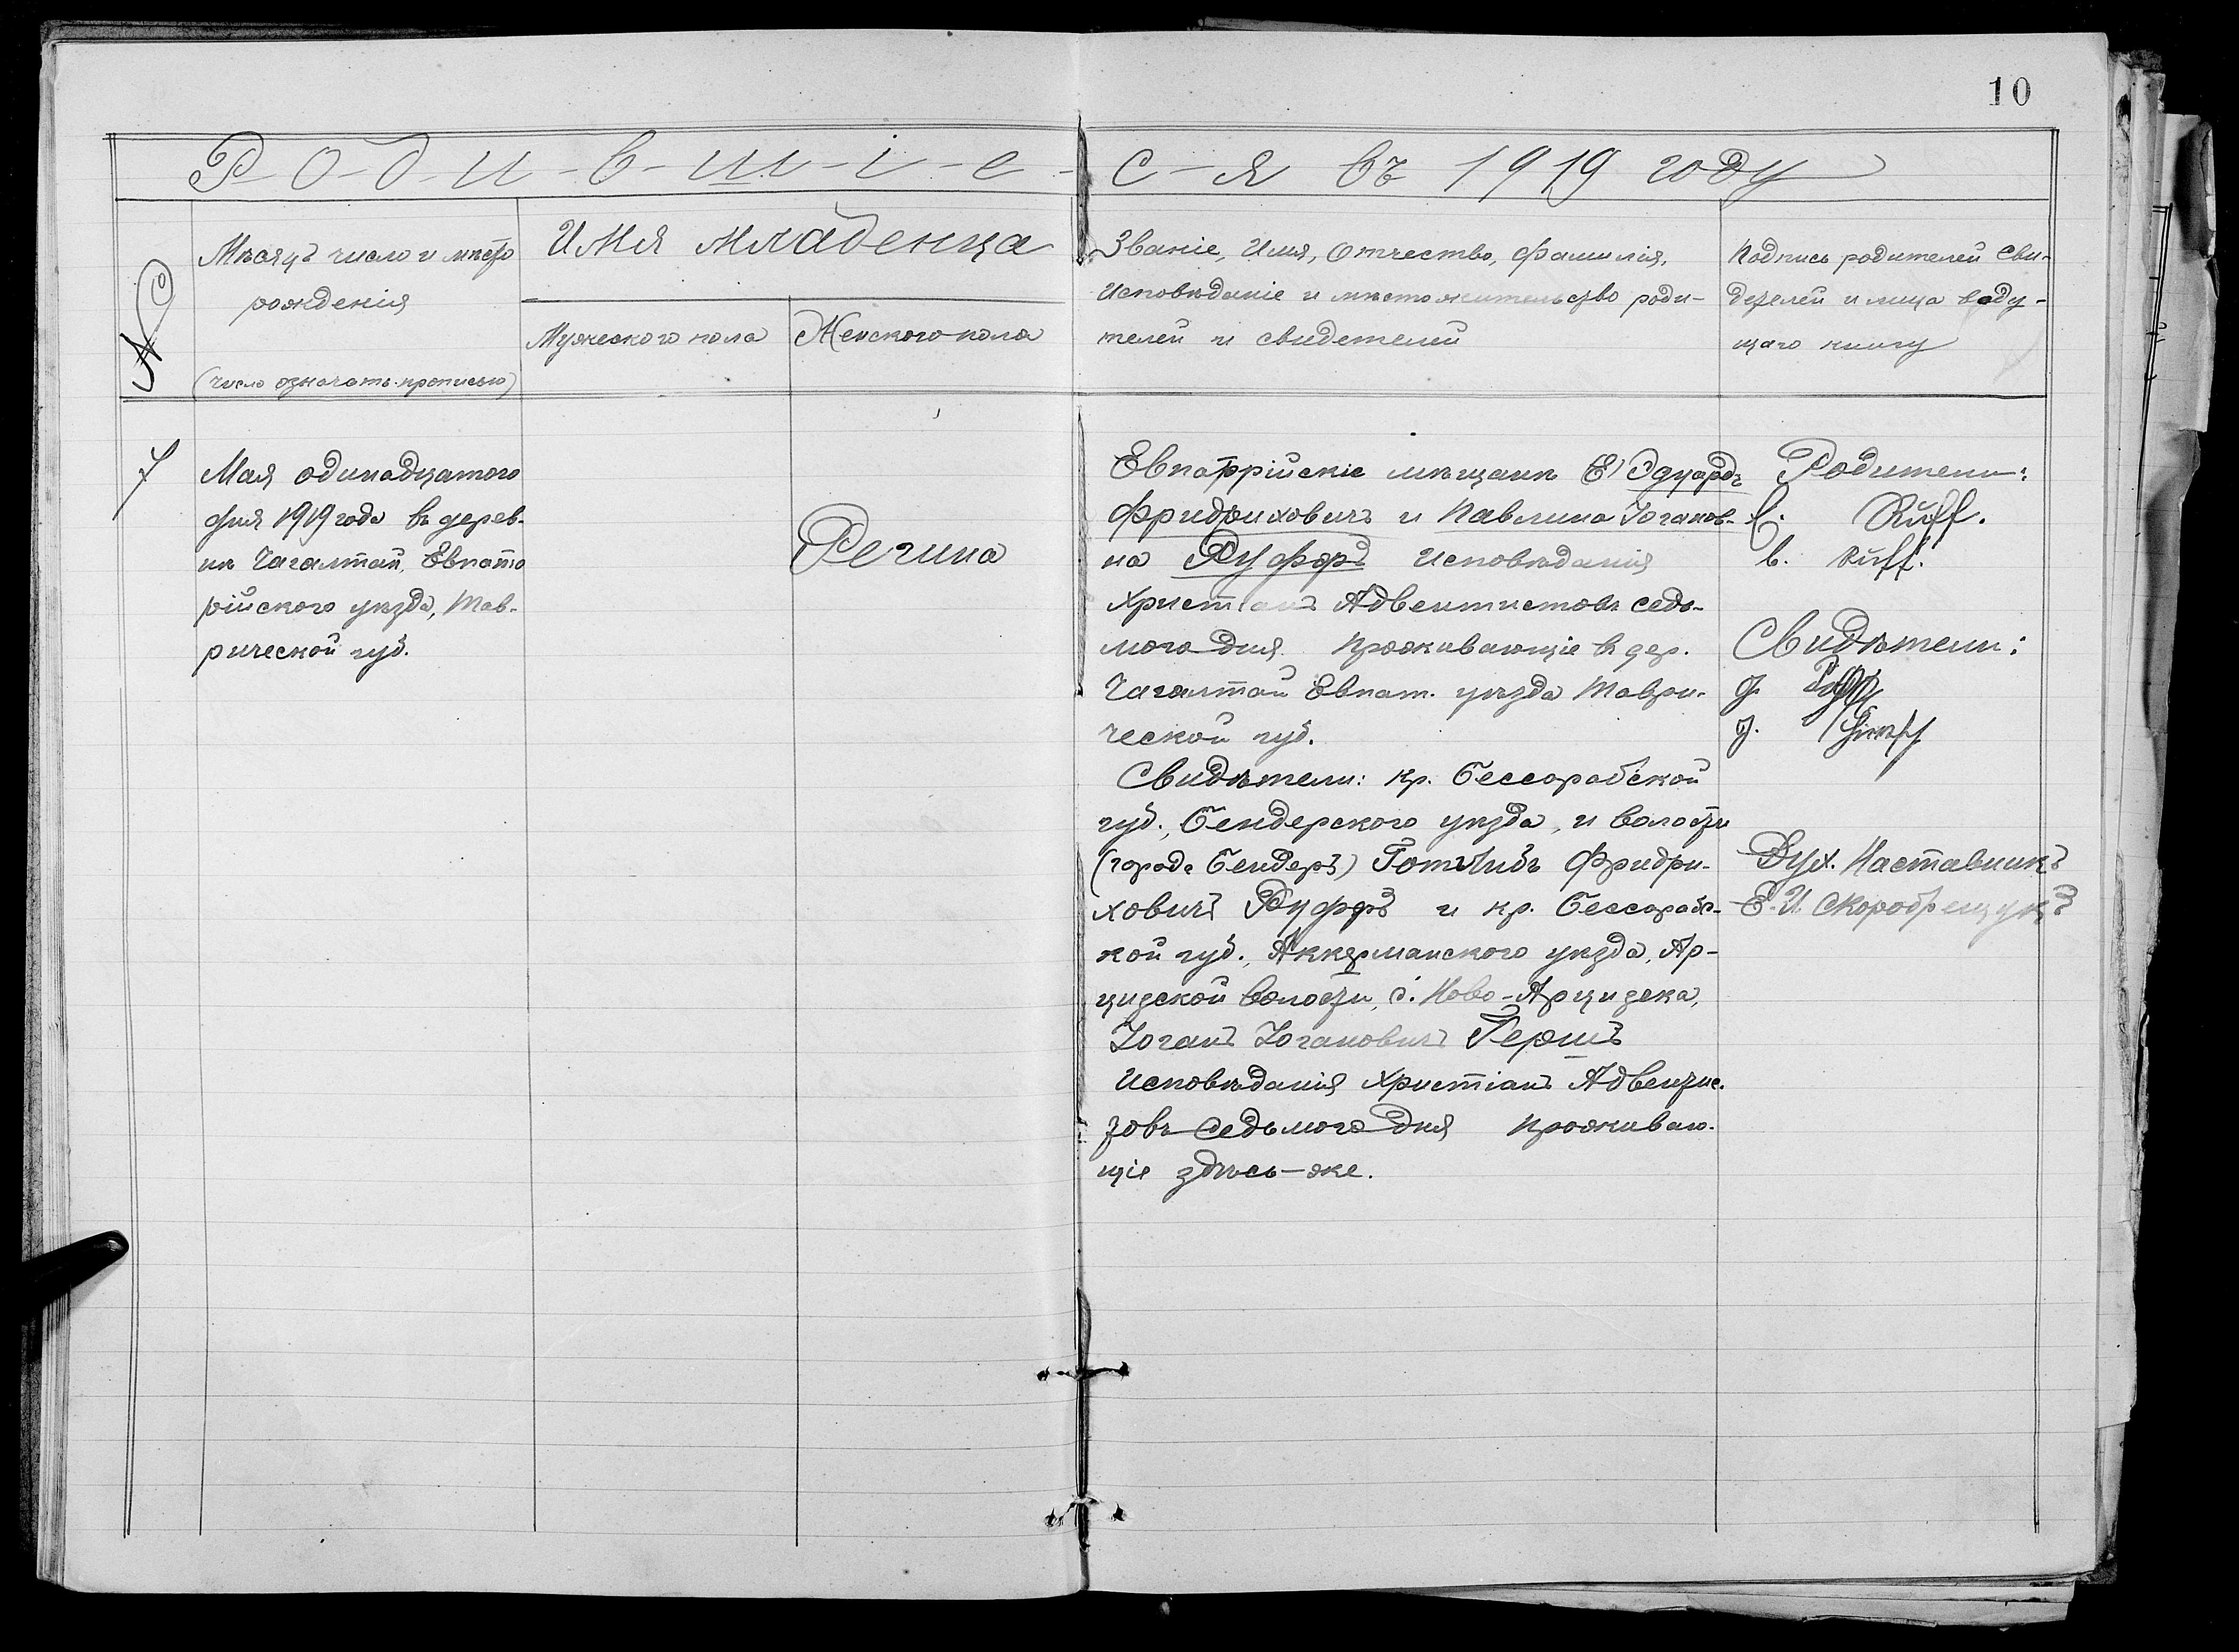 10
Р-о-д-и-в-ш-і-е-с-я въ 1919 году
№
Мѣсяцъ число и мѣсто
рожденія
(число означать прописью)
Имя младенца
Мужескаго пола
Женскаго пола
Званіе, Имя, Отчество, Фамилія,
Исповѣданіе и мѣстожительство роди-
телей и свидетелей
Подпись родителей сви-
детелей и лица веду-
щаго книгу
7
Мая одинадцатого
дня 1919 года въ дерев-
нѣ Чагалтай, Евпато
рійского уѣзда, Тав-
рической губ.
Регина
Евпаторійскіе мѣщане Эдуардъ
Фридриховичъ и Павлина Іоганов-
на Руффъ Исповѣданія
Христіанъ Адвентистовъ седь-
мого дня проживающіе въ дер.
Чагалтай Евпат. уѣзда Таври-
ческой губ.
Свидѣтели: кр. Бессарабской
губ., Бендерского уѣзда, и волости
(города Бендеръ) Готлибъ Фридри-
ховичъ Руффъ и кр. Бессарабс-
кой губ., Аккерманского уѣзда, Ар-
цизской волости, с. Ново-Арцизска,
Іоганъ Іогановичъ Герцъ
Исповѣданія Христіанъ Адвентис-
товъ седьмого дня проживаю-
щіе здѣсь-же.
Родители:
E. Ruff.
b. Ruff.
Свидѣтели:
J.
J.
Дух. Наставникъ
Е. И. Скоробрещукъ